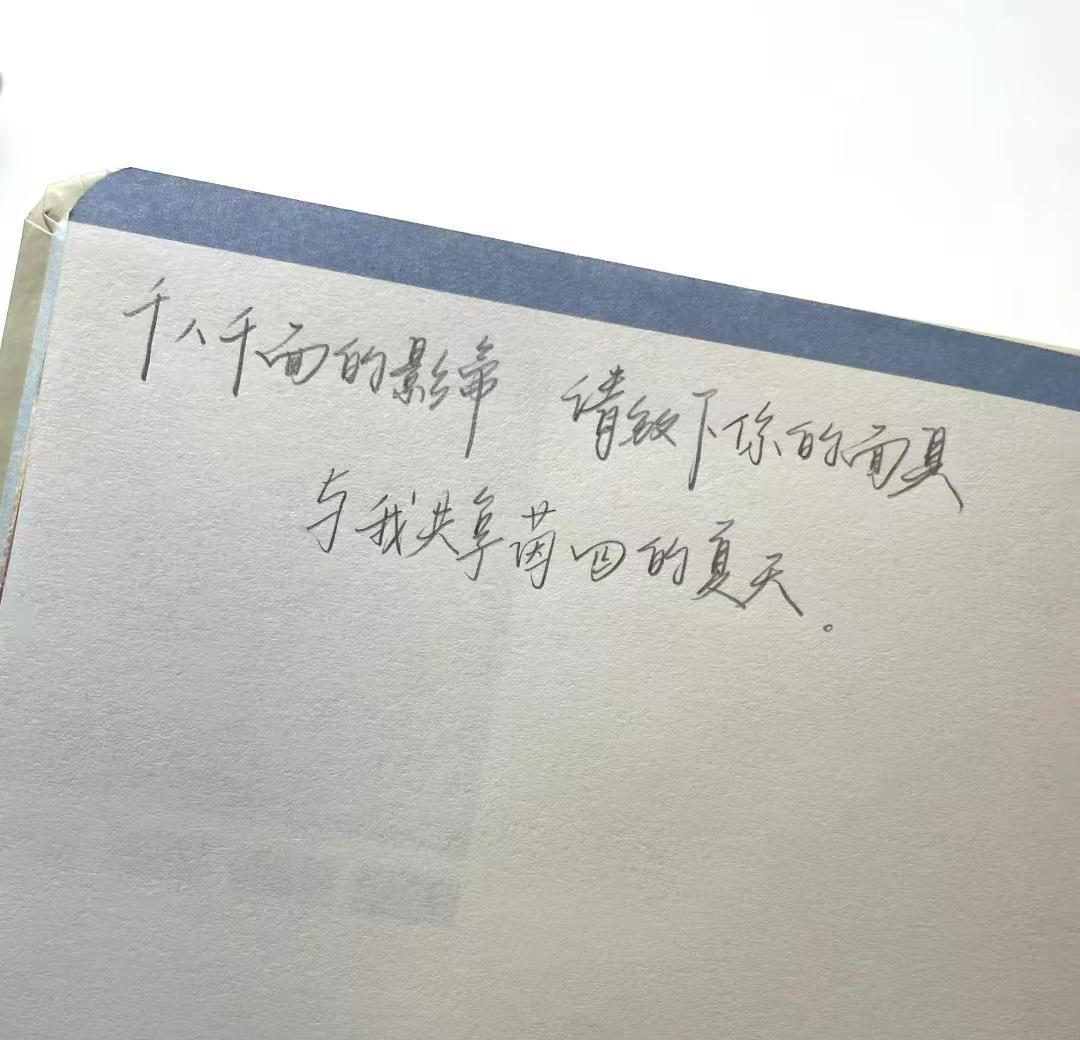 千人千面的影帝 请放下你的面具
与我共享茵四的夏天。